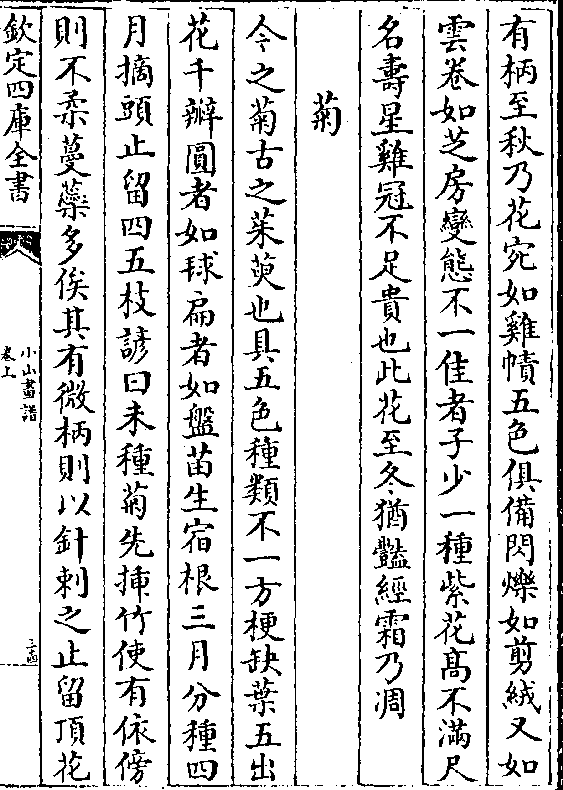 有柄至秋乃花宛如雞幘五色俱備閃爍如剪絨又如
雲卷如芝房變態不一佳者子少一種紫花髙不滿尺
名壽星雞冠不足貴也此花至冬猶豔經霜乃凋
菊
今之菊古之茱萸也具五色種類不一方梗缺葉五出
花千瓣圓者如毬扁者如盤苗生宿根三月分種四
月摘頭止留四五枝諺曰未種菊先揷竹使有依傍
則不柔蔓蘂多俟其有微柄則以針刺之止留頂花
欽定四庫全書
小山畫譜
卷上
三四